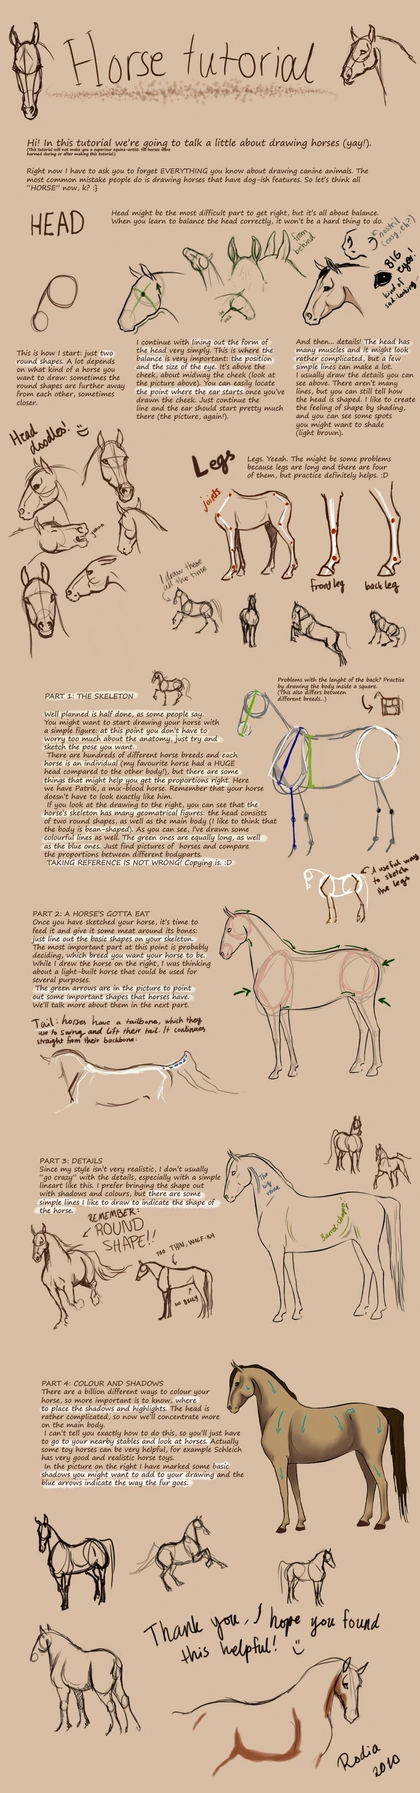 Horse tutorial
Hi! In this tutorial we're going to talk a little about drawing horses (yay!).
(This tutorial will not make you a superior equine-artist. No horses were
harmed during or after making this tutorial.)
Right now I have to ask you to forget EVERYTHING you know about drawing canine animals. The
most common mistake people do is drawing horses that have dog-ish features. So let's think all
"HORSE" now, k? :}
HEAD
Head might be the most difficult part to get right, but it's all about balance.
When you learn to balance the head correctly, it won't be a hard thing to do.
from
behind
nostril
(easy, eh?)
BIG
eyes!
kind of
This is how I start: just two
round shapes. A lot depends
on what kind of a horse you
want to draw: sometimes the
round shapes are further away
from each other, sometimes
closer.
I continue with lining out the form of
the head very simply. This is where the
balance is very important: the position
and the size of the eye. It's above the
cheek, about midway the cheek (look at
the picture above). You can easily locate
the point where the ear starts once you've
drawn the cheek. Just continue the
line and the ear should start pretty much
there (the picture, again!).
And then... details! The head has
many muscles and it might look
rather complicated, but a few
simple lines can make a lot.
I usually draw the details you can
see above. There aren't many
lines, but you can still tell how
the head is shaped. I like to create
the feeling of shape by shading,
and you can see some spots
you might want to shade
(light brown).
Head
doodles!
Legs
Legs. Yeeah. The might be some problems
because legs are long and there are four
of them, but practice definitely helps. :D
joints
front leg
back leg
I draw these
all the time
PART 1: THE SKELETON
Well planned is half done, as some people say.
You might want to start drawing your horse with
a simple figure: at this point you don't have to
worry too much about the anatomy, just try and
sketch the pose you want.
There are hundreds of different horse breeds and each
horse is an individual (my favourite horse had a HUGE
head compared to the other body!), but there are some
things that might help you get the proportions right. Here
we have Patrik, a mix-blood horse. Remember that your horse
doesn't have to look exactly like him.
If you look at the drawing to the right, you can see that the
horse's skeleton has many geometrical figures: the head consists
of two round shapes, as well as the main body (I like to think that
the body is bean-shaped). As you can see, I've drawn some
colourful lines as well. The green ones are equally long, as well
as the blue ones. Just find pictures of horses and compare
the proportions between different bodyparts.
TAKING REFERENCE IS NOT WRONG! Copying is. :D
Problems with the lenght of the back? Practise
by drawing the body inside a square.
(This also differs between
different breeds...)
A useful way
to sketch
the legs
PART 2: A HORSE'S GOTTA EAT
Once you have sketched your horse, it's time to
feed it and give it some meat around its bones:
just line out the basic shapes on your skeleton.
The most important part at this point is probably
deciding, which breed you want your horse to be.
While I drew the horse on the right, I was thinking
about a light-built horse that could be used for
several purposes.
The green arrows are in the picture to point
out some important shapes that horses have.
We'll talk more about them in the next part.
Tail: horses have a tailbone, which they
use to swing and lift their tail. It continues
straight from their backbone:
PART 3: DETAILS
Since my style isn't very realistic, I don't usually
"go crazy" with the details, especially with a simple
lineart like this. I prefer bringing the shape out
with shadows and colours, but there are some
simple lines I like to draw to indicate the shape of
the horse.
REMEMBER:
ROUND
SHAPE!!
TOO THIN, WOLF-ISH
NO BELLY
Barrel-shape
PART 4: COLOUR AND SHADOWS
There are a billion different ways to colour your
horse, so more important is to know, where
to place the shadows and highlights. The head is
rather complicated, so now we'll concentrate more
on the main body.
I can't tell you exactly how to do this, so you'll just have
to go to your nearby stables and look at horses. Actually
some toy horses can be very helpful, for example Schleich
has very good and realistic horse toys.
In the picture on the right I have marked some basic
shadows you might want to add to your drawing and the
blue arrows indicate the way the fur goes.
Thank you, I hope you found
this helpful! :)
Rodia
2010